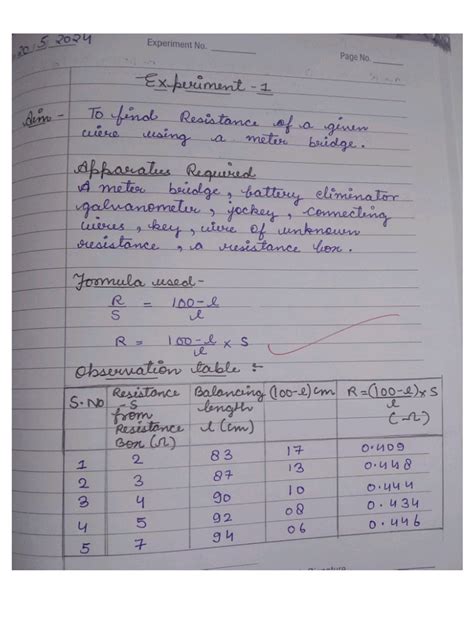 20.5.2024
Experiment No.
Page No.
Experiment -1
Aim - To find Resistance of a given
wire using a meter bridge.
Apparatus Required
A meter bridge, battery eliminator
galvanometer, jockey, connecting
wires, key, wire of unknown
resistance, a resistance box.
Formula used -
R/S = 100-l/l
R = 100-l/l × S
Observation table :-
S.No | Resistance -S from Resistance Box (Ω) | Balancing length l (cm) | (100-l) cm | R = (100-l)/l × S (Ω)
1 | 2 | 83 | 17 | 0.409
2 | 3 | 87 | 13 | 0.448
3 | 4 | 90 | 10 | 0.444
4 | 5 | 92 | 08 | 0.434
5 | 7 | 94 | 06 | 0.446